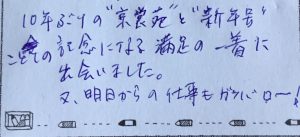 10年ぶりの"京裳苑"と"新年号"
の記念になる満足の一着に
出会いました。
又、明日からの仕事もガンバロー!